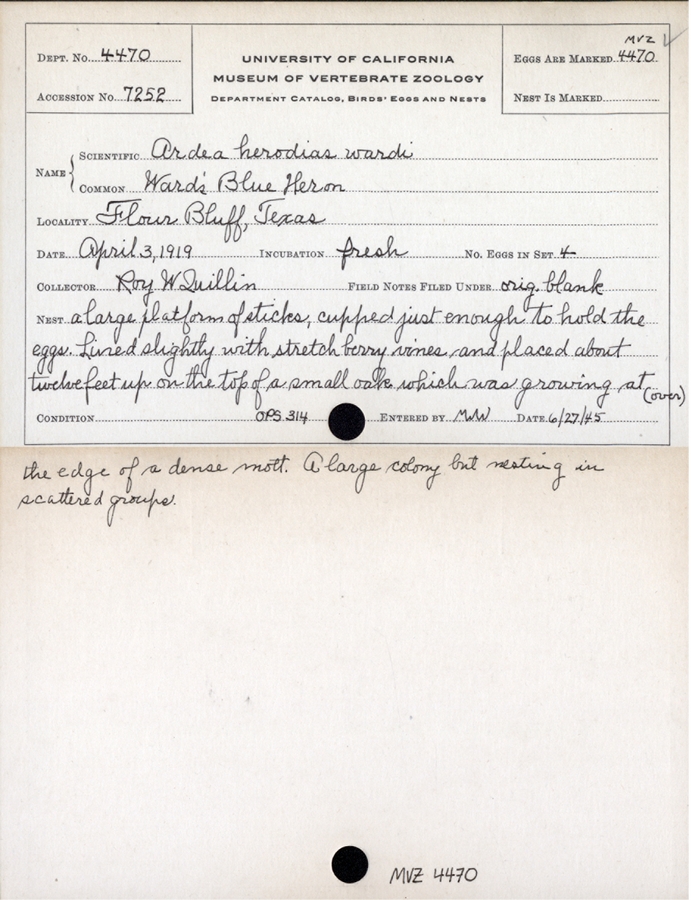 MVZ
DEPT. NO. 4470
UNIVERSITY OF CALIFORNIA
EGGS ARE MARKED 4470
MUSEUM OF VERTEBRATE ZOOLOGY
ACCESSION NO. 7252
DEPARTMENT CATALOG, BIRDS' EGGS AND NESTS
NEST IS MARKED
NAME { SCIENTIFIC Ardea herodias wardi
COMMON Ward's Blue Heron
LOCALITY Flour Bluff, Texas
DATE April 3, 1919 INCUBATION fresh NO. EGGS IN SET 4
COLLECTOR Roy W Quillin FIELD NOTES FILED UNDER orig. blank
NEST a large platform of sticks, cupped just enough to hold the
eggs. Lined slightly with stretch berry vines, and placed about
twelve feet up on the top of a small oak which was growing at (over)
CONDITION OPS 314 ENTERED BY MW DATE 6/27/45
the edge of a dense mott. A large colony but nesting in
scattered groups.
MVZ 4470